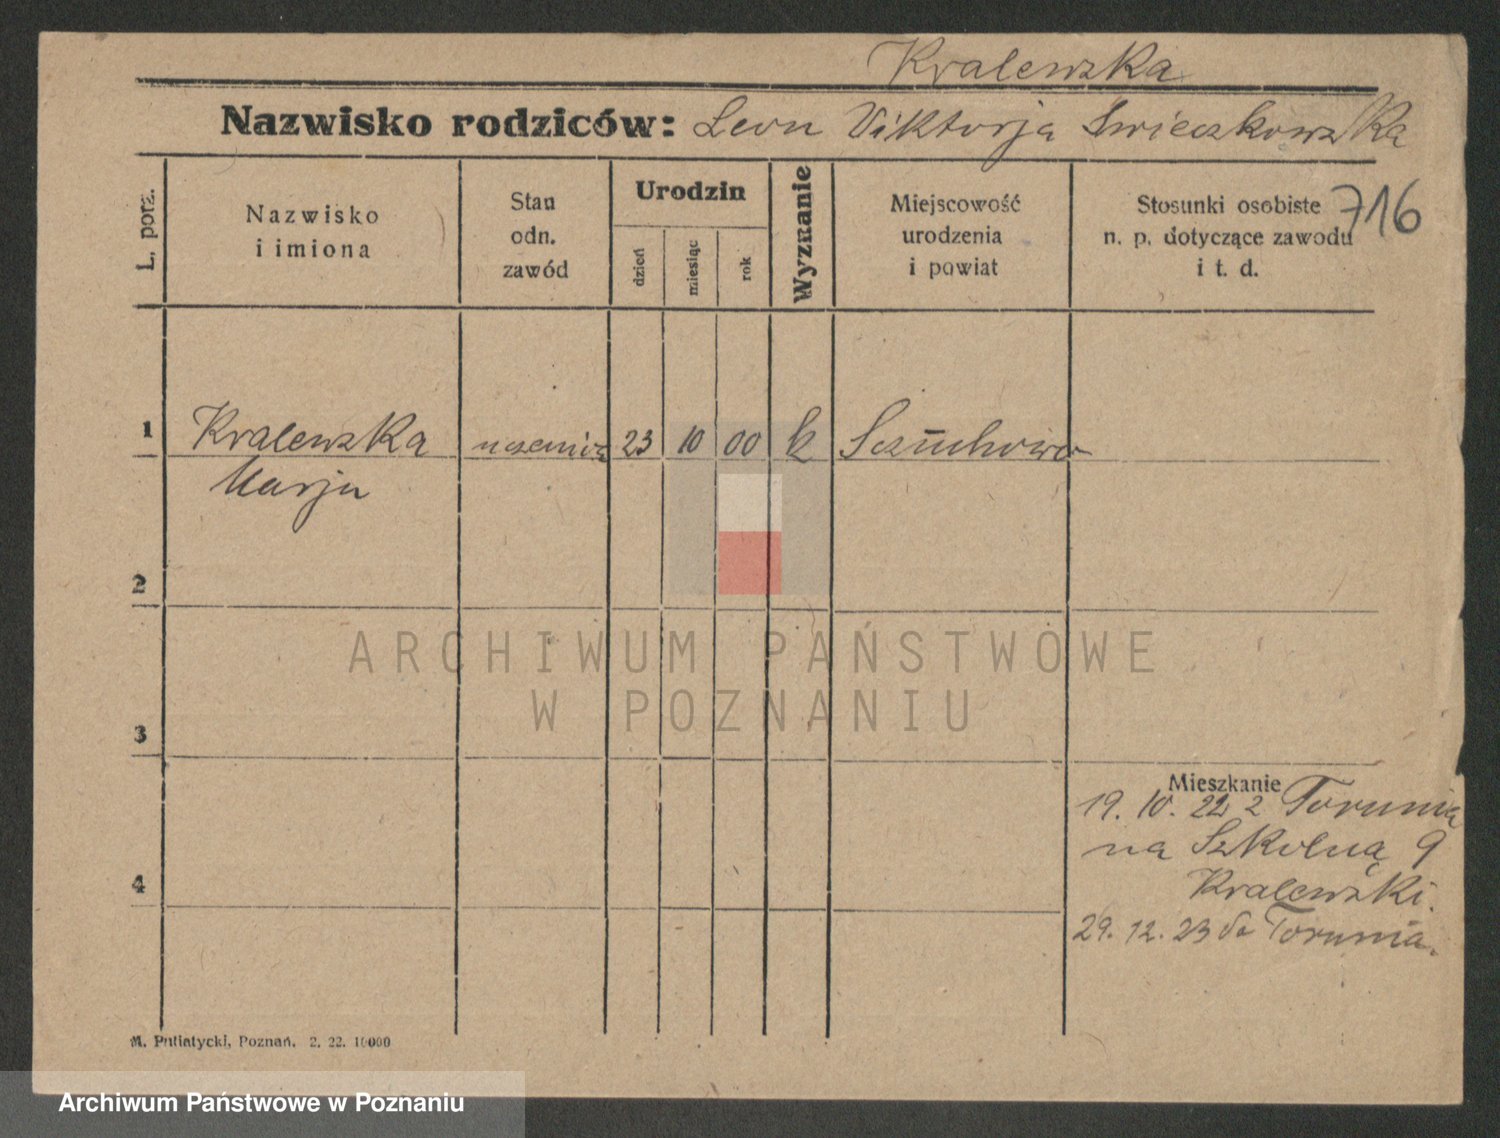 Kralewska
Nazwisko rodziców: Leon Viktorja Swieczkowska
L. porz.
Nazwisko
i imiona
Stan
odn.
zawód
Urodzin
dzień
miesiąc
rok
Wyznanie
Miejscowość
urodzenia
i powiat
Stosunki osobiste
n. p. dotyczące zawodu
i t. d.
716
1 Kralewska 23 10 00 k
Marja
2
3
4
Mieszkanie
19. 10. 22 z Torunia
na Szkolną 9
Kralewski.
29. 12. 23 do Torunia.
M. Putiatycki, Poznań. 2. 22. 10000
ARCHIWUM PAŃSTWOWE
W POZNANIU
Archiwum Państwowe w Poznaniu